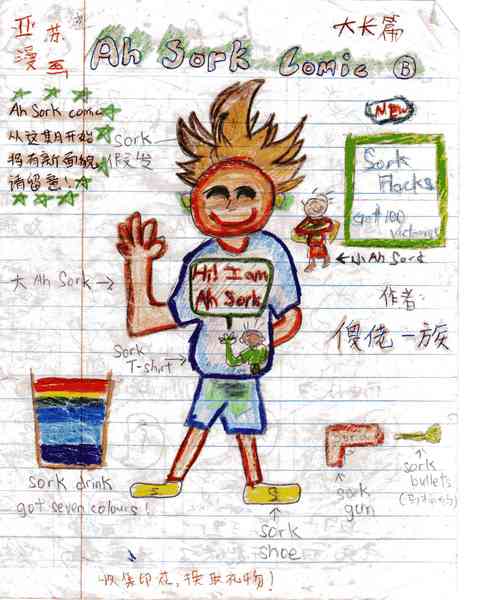 亚苏
漫画
大长篇
Ah Sork Comic B
NEW
Ah Sork comic
从这期开始
将有新面貌
请留意!
sork
假发
Sork
Hacks
小Ah Sord
作者:
傻佬一族
Hi! I am
Ah Sork
大 Ah Sork
Sork
T-shirt
sork drink
got seven colours!
S
S
sork
shoe
sork
gun
sork
bullets
收集印花,换取礼物!